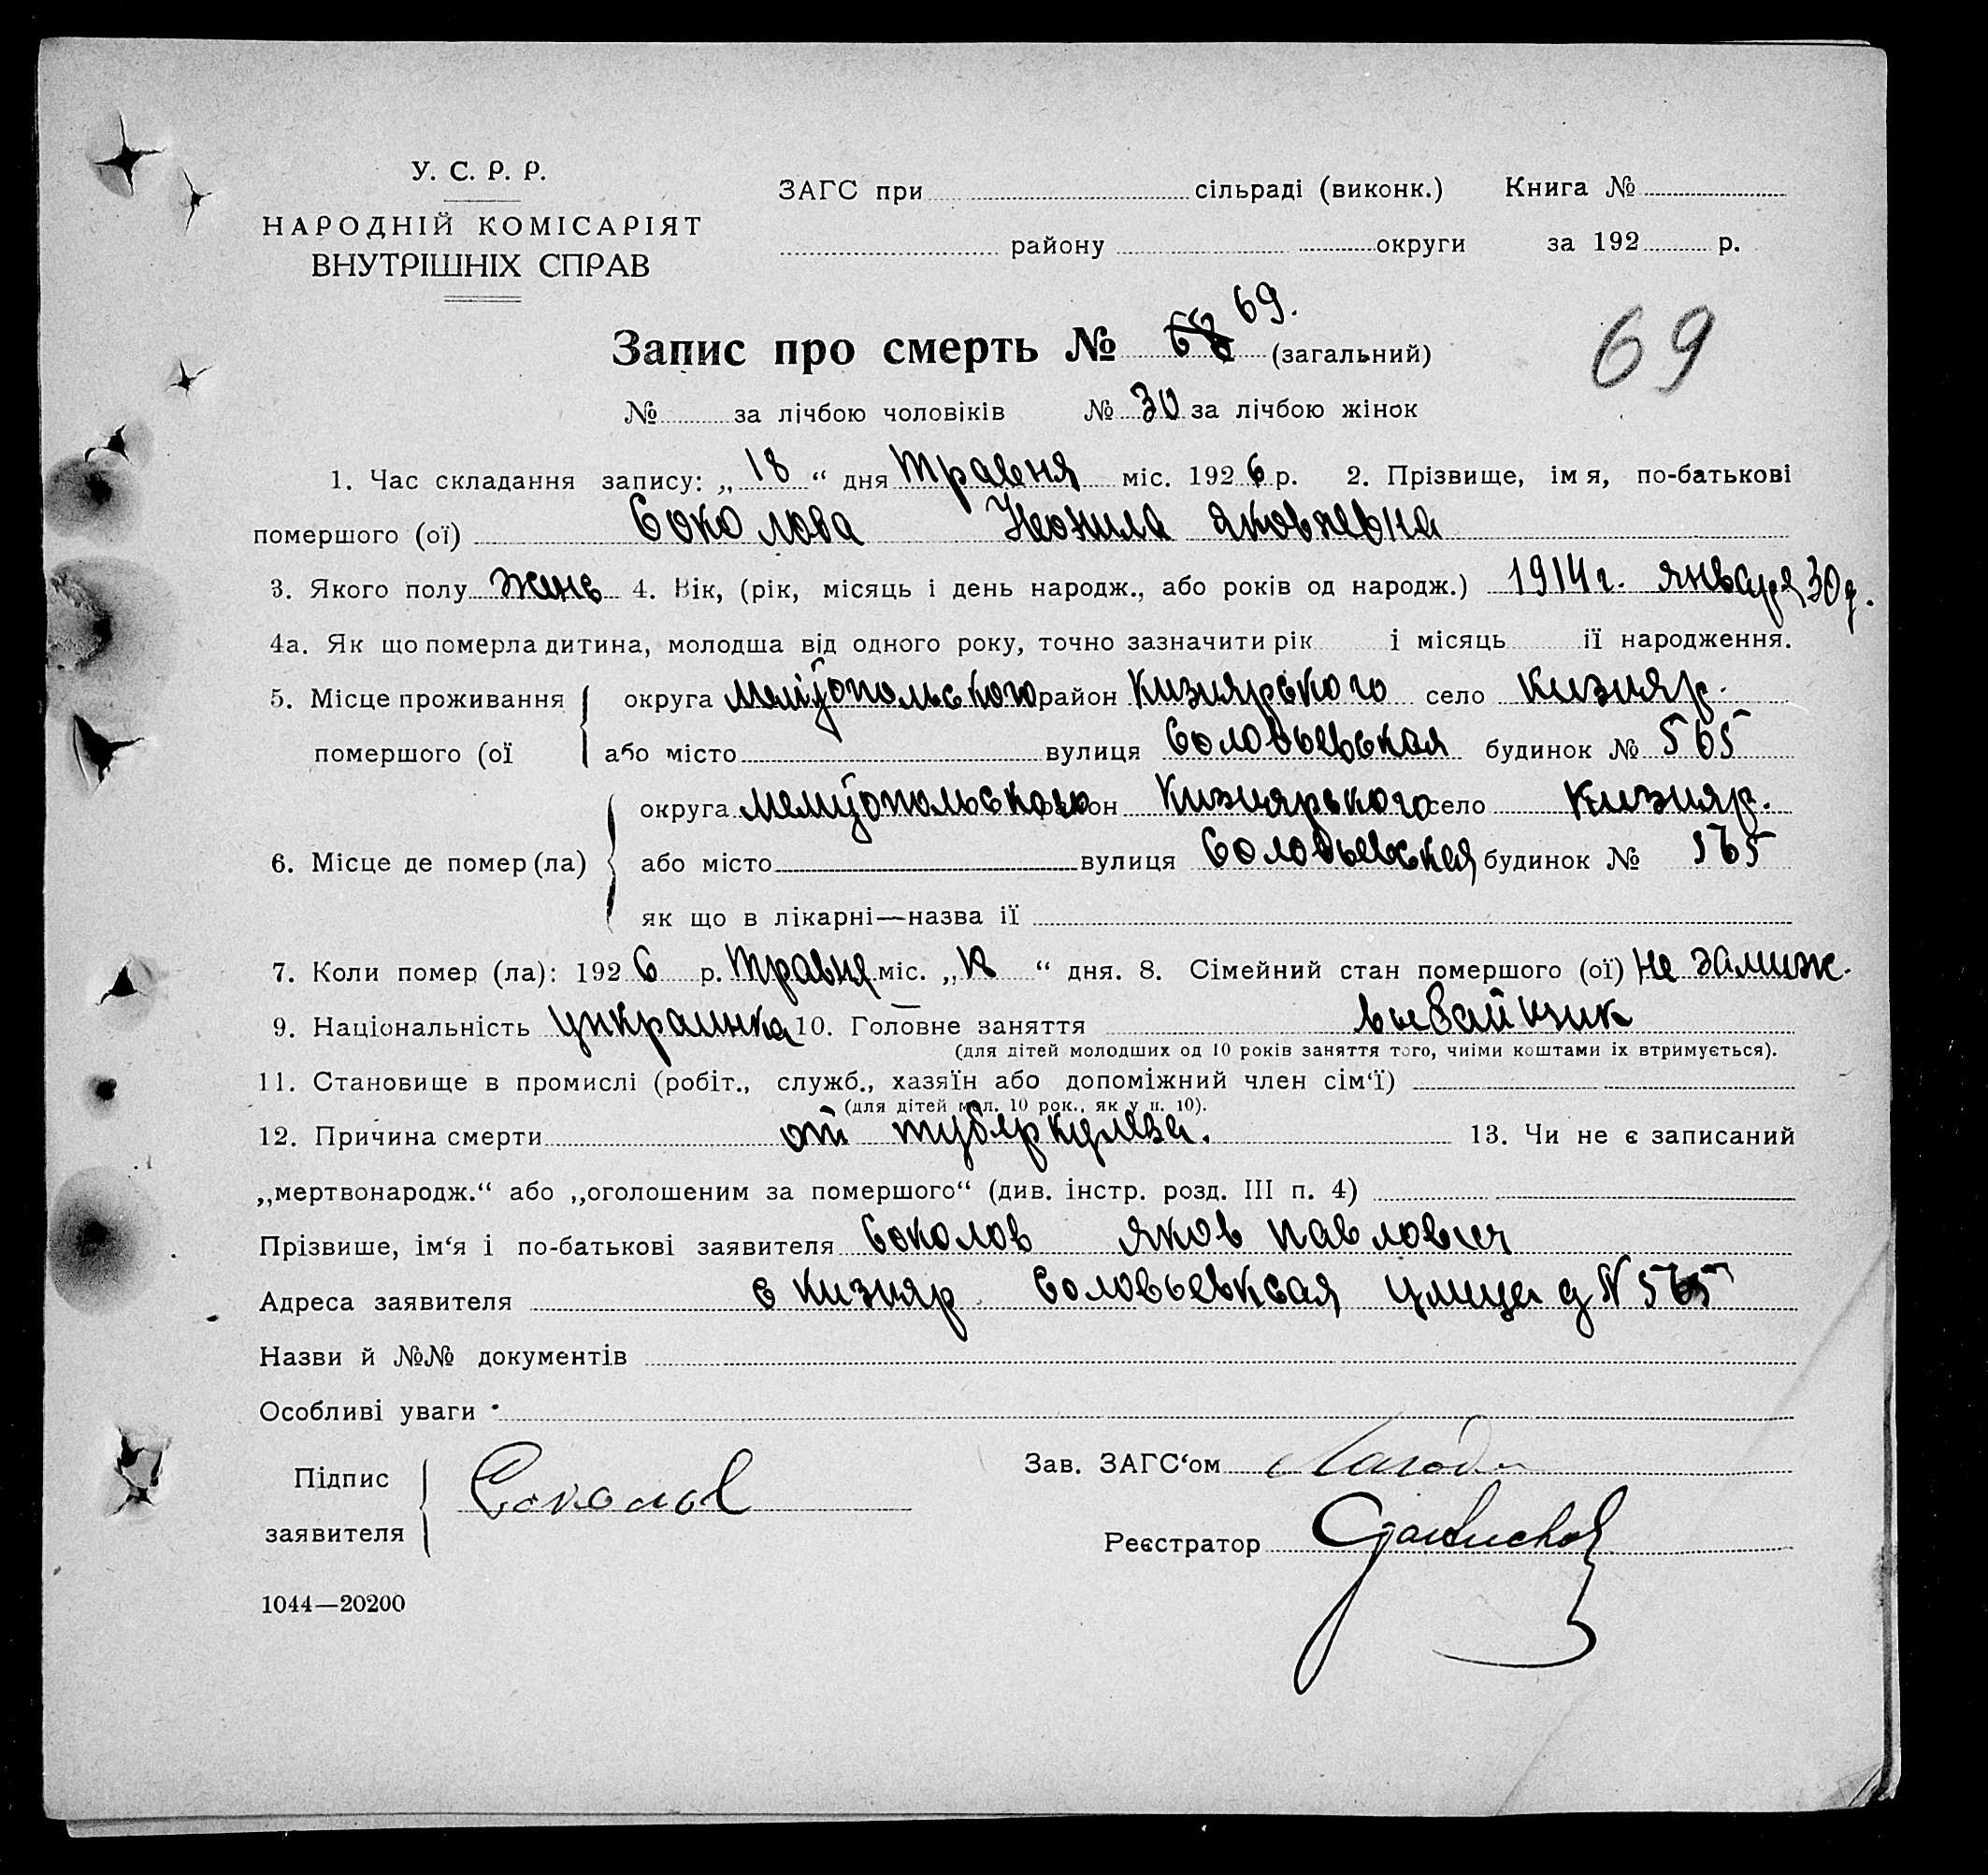 У. С. Р. Р.
НАРОДНІЙ КОМІСАРІЯТ
ВНУТРІШНІХ СПРАВ
ЗАГС при сільраді (виконк.) Книга №
району округи за 192 р.
Запис про смерть № 69. (загальний)
69
№ за лічбою чоловіків № 30 за лічбою жінок
1. Час складання запису: „18“ дня Травня міс. 1926 р. 2. Прізвище, імя, по-батькові
помершого (ої) Соколова Неонила Яковлевна
3. Якого полу женс 4. Вік, (рік, місяць і день народж., або років од народж.) 1914 г. января 30 д.
4а. Як що померла дитина, молодша від одного року, точно зазначити рік і місяць ії народження.
5. Місце проживання округа район Кизиярского село Кизияр.
помершого (ої або місто вулиця Соловьевская будинок № 565
округа район Кизиярского село Кизияр.
6. Місце де помер (ла) або місто вулиця Соловьевская будинок № 565
як що в лікарні—назва ії
7. Коли помер (ла): 1926 р. Травня міс. „ “ дня. 8. Сімейний стан помершого (ої) не замиж.
9. Національність укркраинка 10. Головне заняття
(для дітей молодших од 10 років заняття того, чиїми коштами іх втримується).
11. Становище в промислі (робіт., служб., хазяїн або допоміжний член сім‘ї)
(для дітей мол. 10 рок., як у п. 10).
12. Причина смерти от туберкулеза. 13. Чи не є записаний
„мертвонародж.“ або „оголошеним за помершого“ (див. інстр. розд. III п. 4)
Прізвише, ім‘я і по-батькові заявителя Соколов Яков Павлович
Адреса заявителя с Кизияр Соловьевксая улица д N 565
Назви й №№ документів
Особливі уваги
Підпис Соколов Зав. ЗАГС‘ом
заявителя Реєстратор
1044—20200